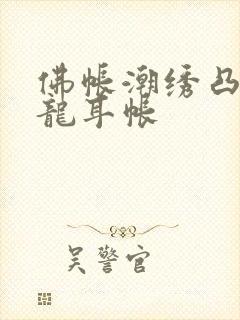 佛帐潮绣凸
龍耳帐
吴警官